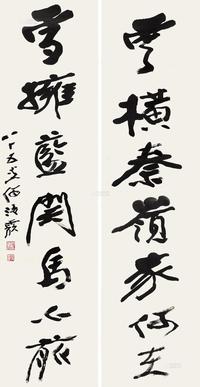 雲橫秦嶺家何在
雪擁藍関馬不前
八十五叟何海霞